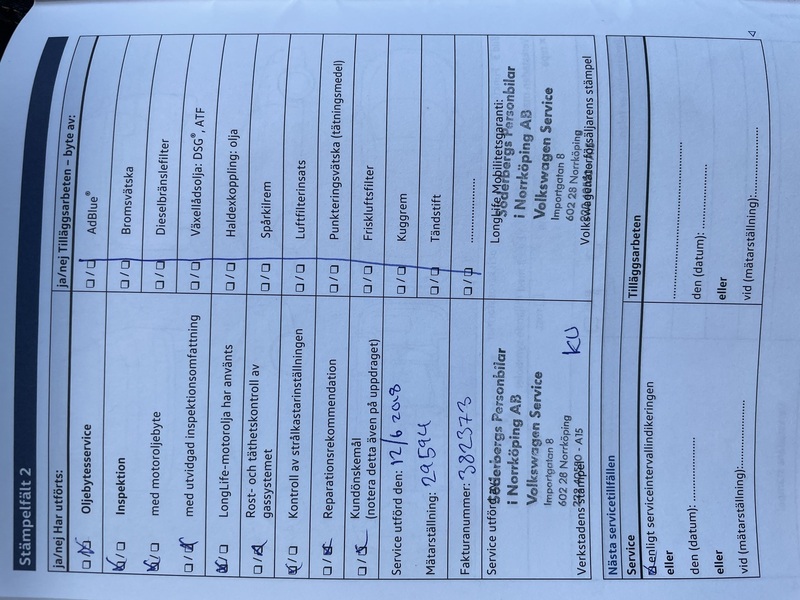 Stämpelfält 2
ja/nej Har utförts:
Oljebytesservice
Inspektion
med motoroljebyte
med utvidgad inspektionsomfattning
LongLife-motorolja har använts
Rost- och täthetskontroll av
gassystemet
Kontroll av strålkastarinställningen
Reparationsrekommendation
Kundönskemål
(notera detta även på uppdraget)
Service utförd den: 12/6 2018
Mätarställning: 29594
Fakturanummer: 382373
Service utförd
Söderbergs Personbilar
i Norrköping AB
Volkswagen Service
Importgatan 8
602 28 Norrköping
- A15
Verkstadens stämpel
KU
ja/nej Tilläggsarbeten – byte av:
AdBlue®
Bromsvätska
Dieselbränslefilter
Växellådsolja: DSG®, ATF
Haldexkoppling: olja
Spårkilrem
Luftfilterinsats
Punkteringsvätska (tätningsmedel)
Friskluftsfilter
Kuggrem
Tändstift
LongLife Mobilitetsgaranti:
Söderbergs Personbilar
i Norrköping AB
Volkswagen Service
Importgatan 8
602 28 Norrköping
Volkswagenåterförsäljarens stämpel
Nästa servicetillfällen
Service
enligt serviceintervallindikeringen
eller
den (datum):
eller
vid (mätarställning):
Tilläggsarbeten
den (datum):
eller
vid (mätarställning):